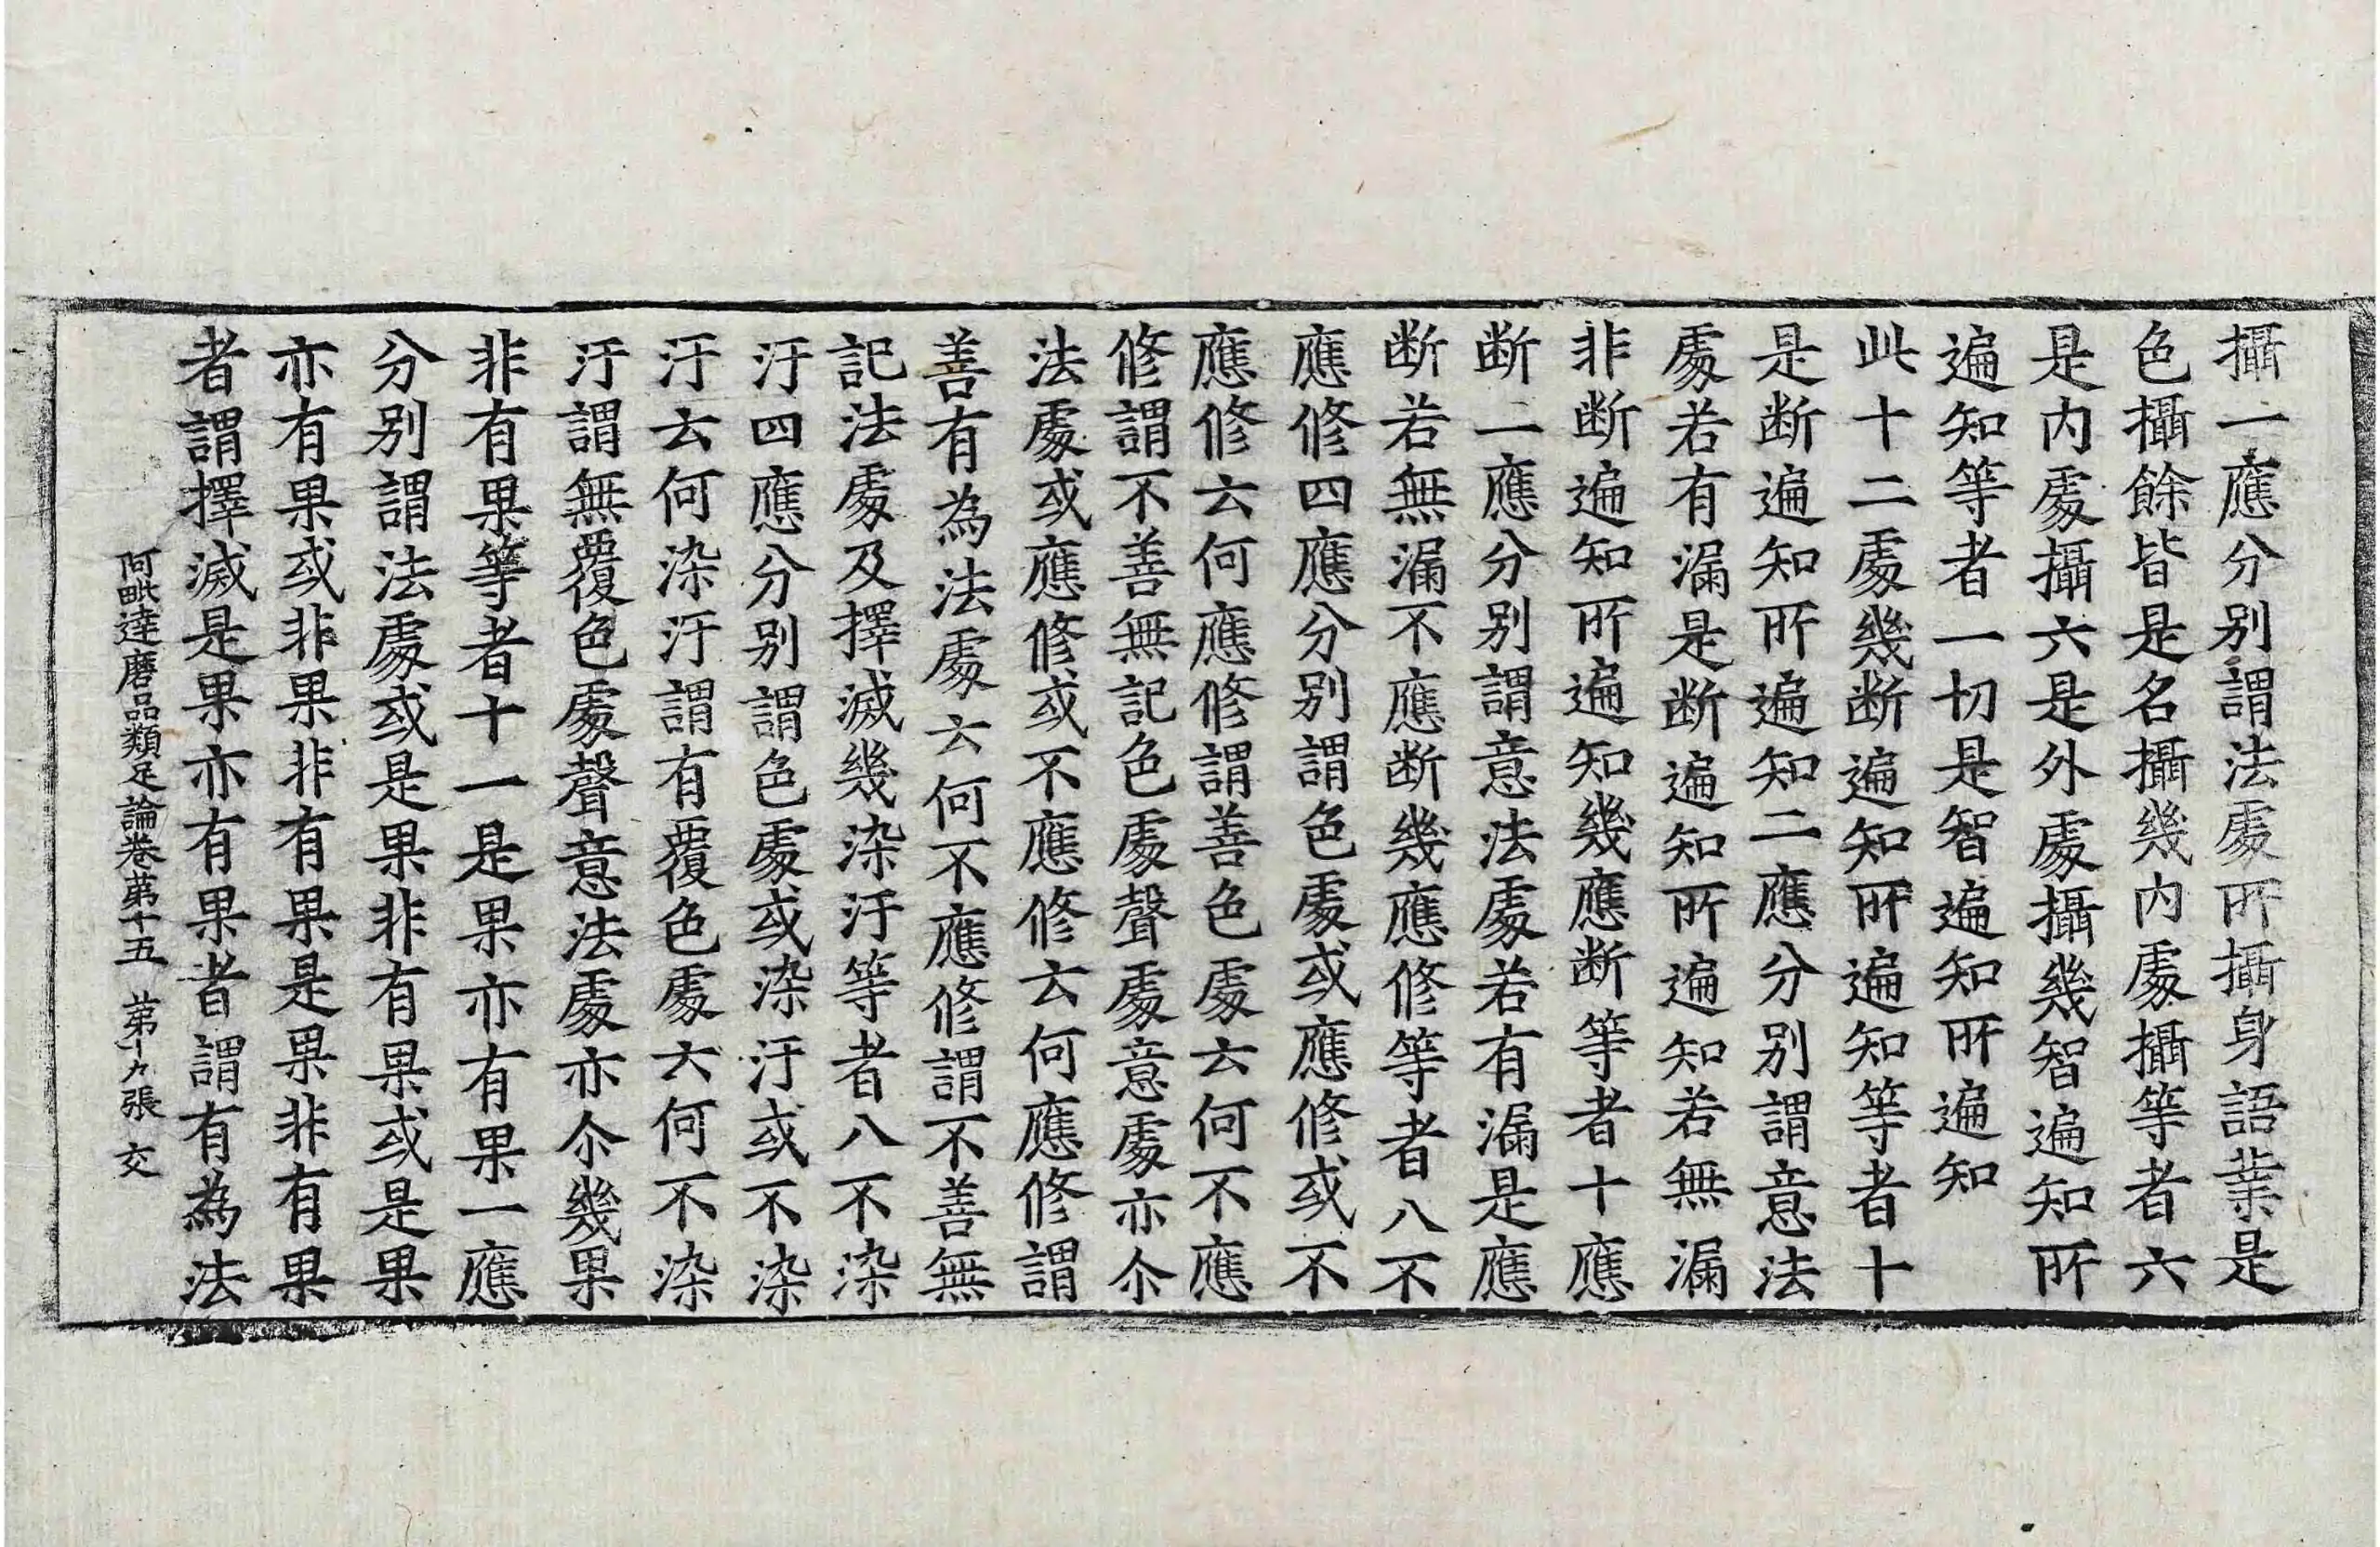 攝一應分別謂法處所攝身語業是
色攝餘皆是名攝幾內處攝等者六
是內處攝六是外處攝幾智遍知所
遍知等者一切是智遍知所遍知
此十二處幾断遍知所遍知等者十
是断遍知所遍知二應分別謂意法
處若有漏是断遍知所遍知若無漏
非断遍知所遍知幾應断等者十應
断二應分別謂意法處若有漏是應
断若無漏不應断幾應修等者八不
應修四應分別謂色處或應修或不
應修云何應修謂善色處云何不應
修謂不善無記色處聲處意處亦尒
法處或應修或不應修云何應修謂
善有為法處云何不應修謂不善無
記法處及擇滅幾染汙等者八不染
汙四應分別謂色處或染汙或不染
汙云何染汙謂有覆色處云何不染
汙謂無覆色處聲意法處亦尒幾果
非有果等者十一是果亦有果一應
分別謂法處或是果非有果或是果
亦有果或非果非有果是果非有果
者謂擇滅是果亦有果者謂有為法
阿毗達磨品類足論卷第十五 第十九張 交